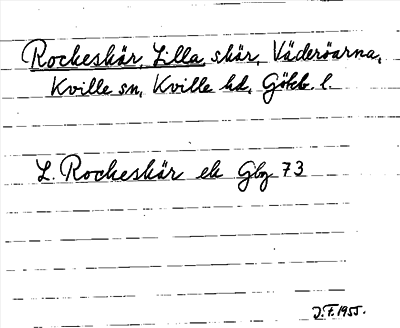 Rockeskär, Lilla, skär, Väderöarna,
Kville sn, Kville hd, Götbb. l.
L. Rockeskär ek Gbg 73
J.F. 1955.